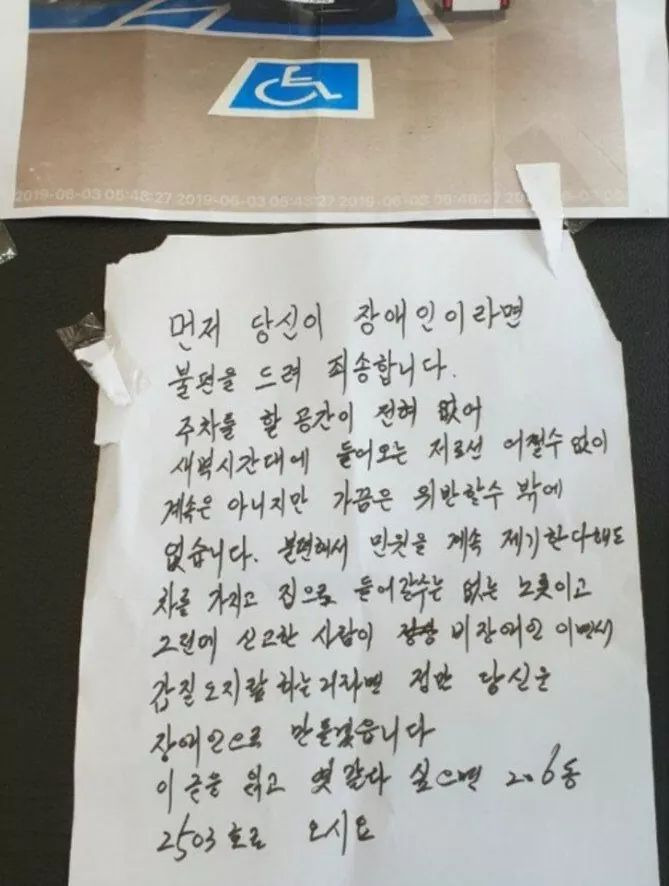 2019-06-03 05:48:27 2019-06-03 05:48:27 2019-06-03 05:48:27
먼저 당신이 장애인이라면
불편을 드려 죄송합니다.
주차를 할 공간이 전혀 없어
새벽시간대에 들어오는 저로선 어쩔수 없이
계속은 아니지만 가끔은 위반할수 밖에
없습니다. 불편해서 민원을 계속 제기한다해도
차를 가지고 집으로 들어갈수는 없는 노릇이고
그런데 신고한 사람이 비장애인 이면서
갑질오지랖 하는거라면 당신을
장애인으로 만들겠습니다
이 글을 읽고 엿 같다 싶으면 206동
2503호로 오시요